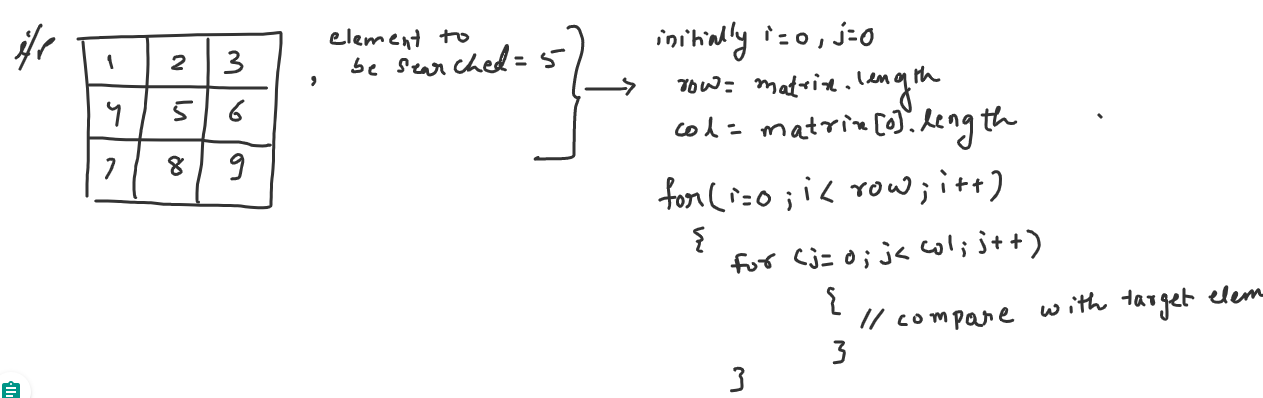 i/p
1 2 3
4 5 6
7 8 9
, element to
be searched = 5
initially i=0, j=0
row = matrix.length
col = matrix[0].length
for(i=0; i< row; i++)
{
for (j=0; j< col; j++)
{
// compare with target elem
}
}